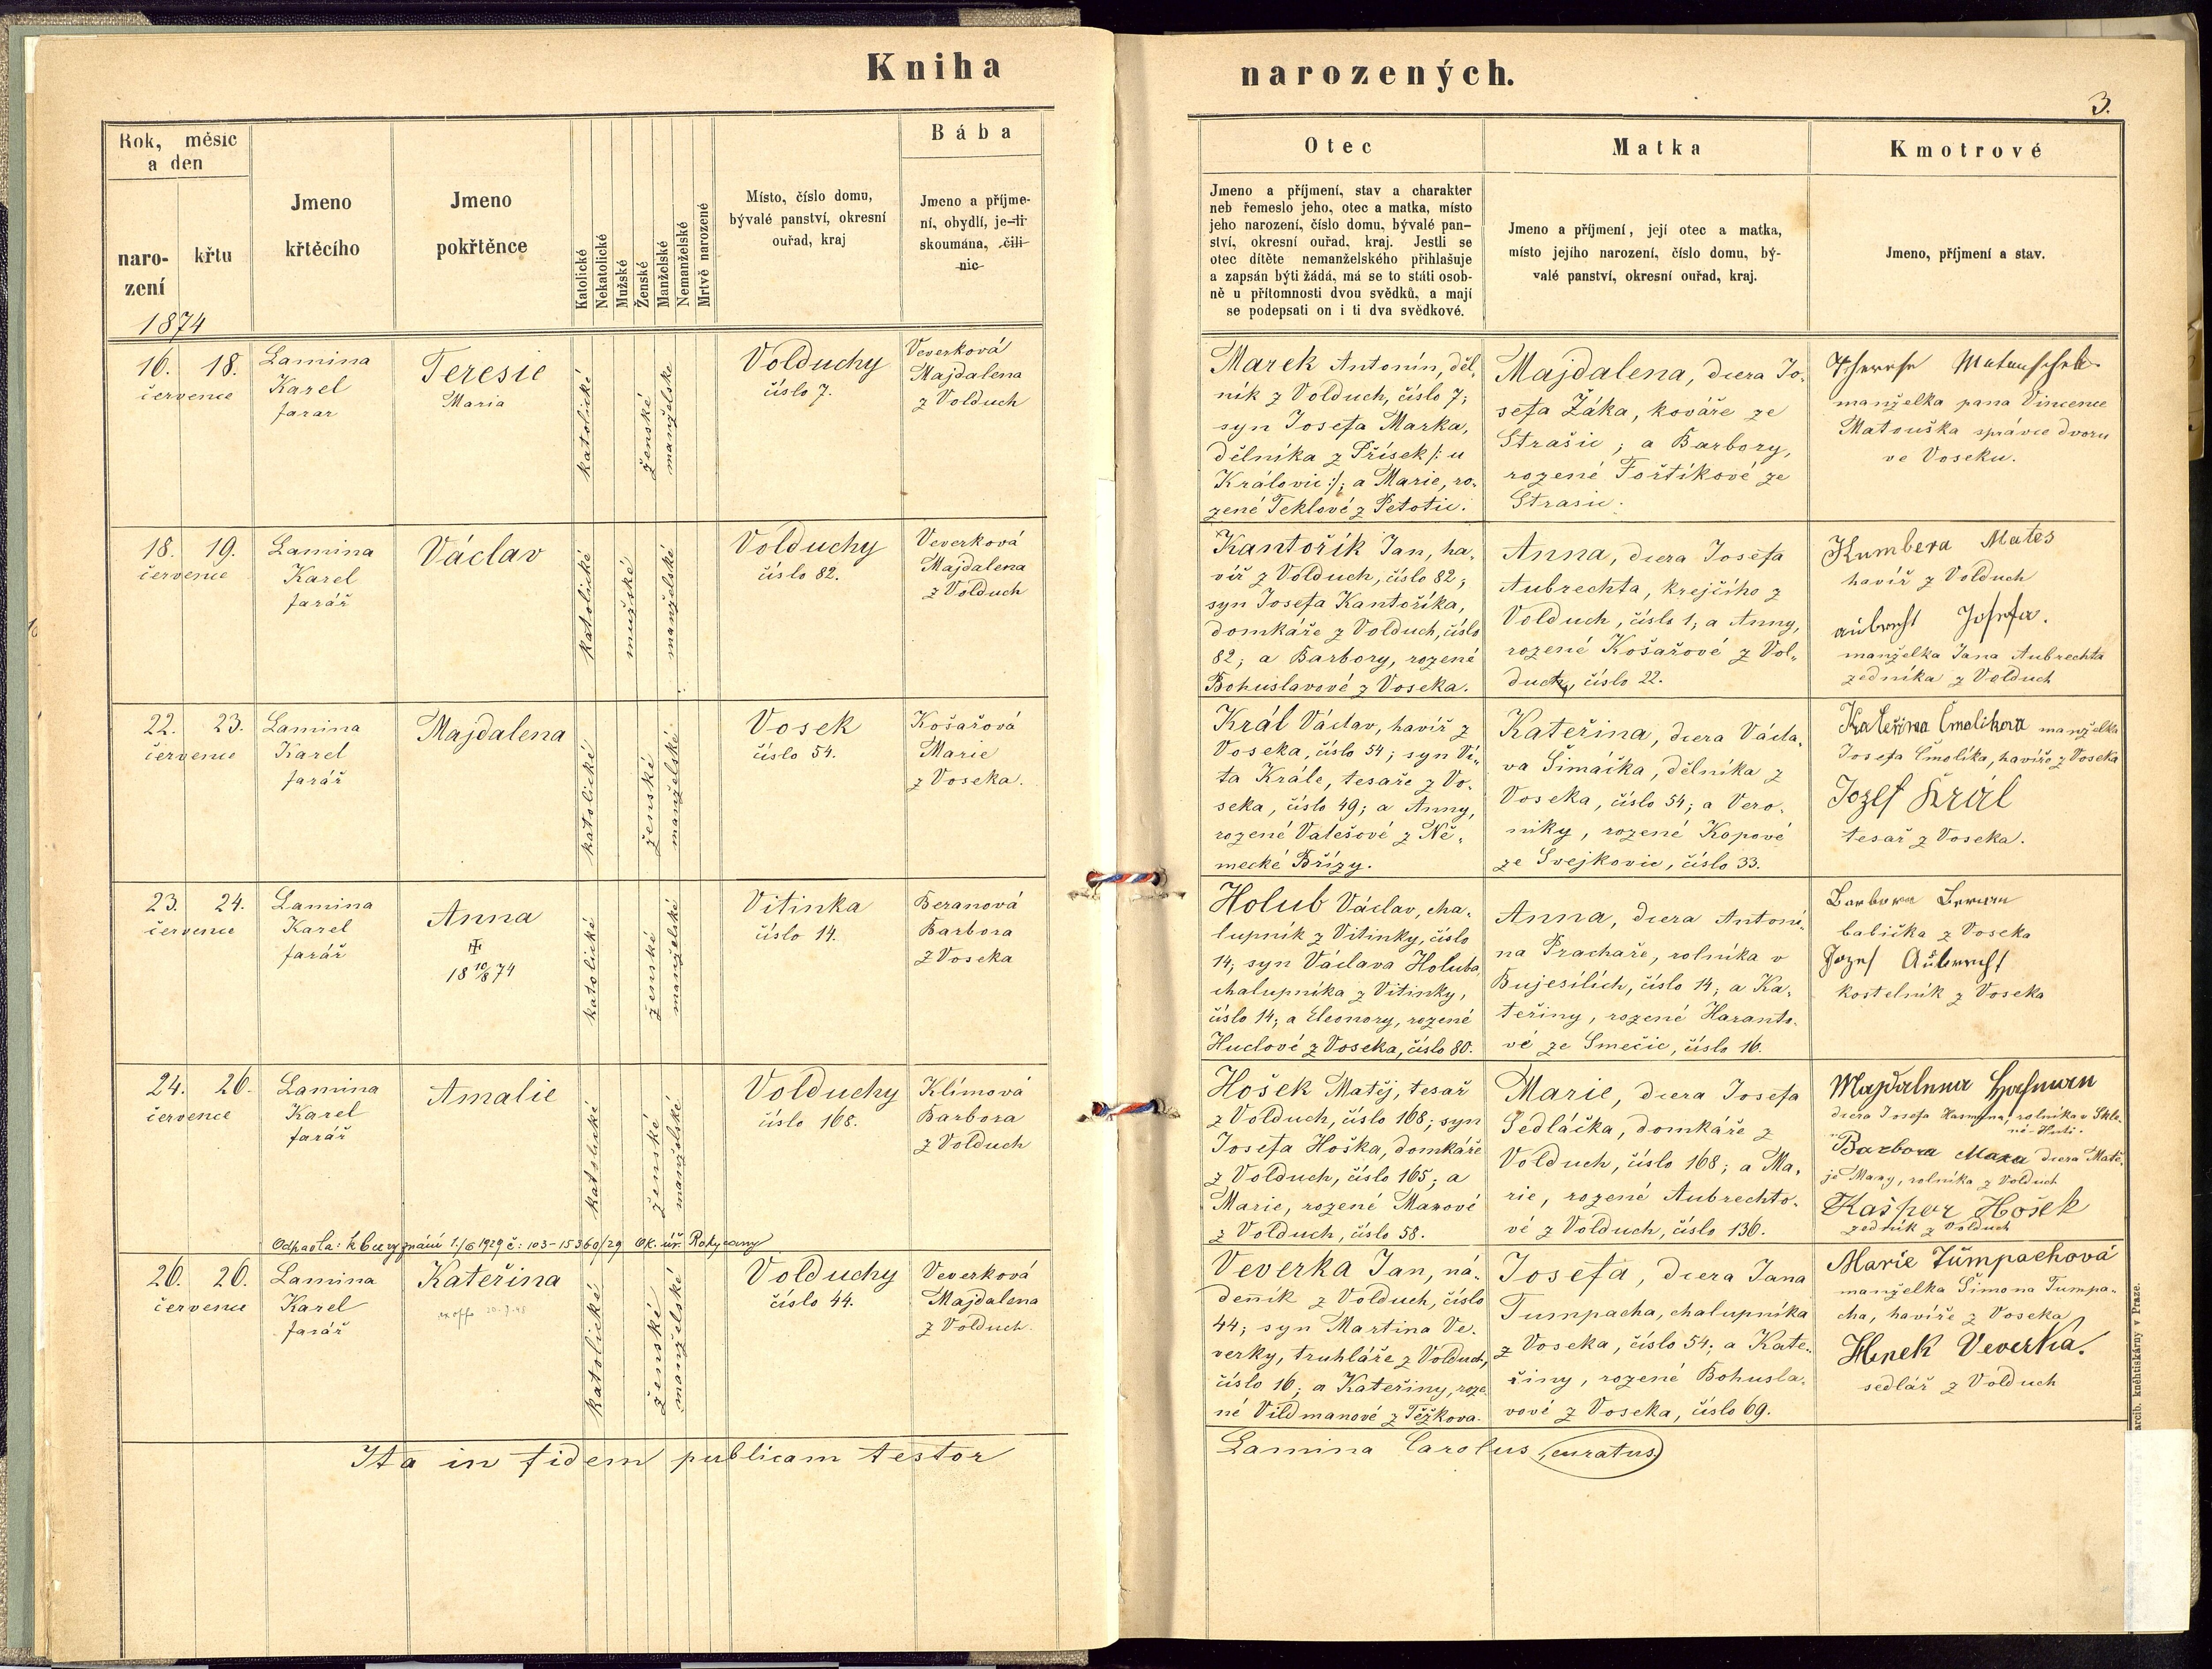 Kniha narozených.
3.
Rok, měsíc
a den
naro-
zení
křtu
1874
Jmeno
křtěcího
Jmeno
pokřtěnce
Katolické
Nekatolické
Mužské
Ženské
Manželské
Nemanželské
Mrtvě narozené
Místo, číslo domu,
bývalé panství, okresní
ouřad, kraj
Bába
Jmeno a příjme-
ní, obydlí, je-li
skoumána, čili
nic
Otec
Jmeno a příjmení, stav a charakter
neb řemeslo jeho, otec a matka, místo
jeho narození, číslo domu, bývalé pan-
ství, okresní ouřad, kraj. Jestli se
otec dítěte nemanželského přihlašuje
a zapsán býti žádá, má se to státi osob-
ně u přítomnosti dvou svědků, a mají
se podepsati on i ti dva svědkové.
Matka
Jmeno a příjmení, její otec a matka,
místo jejího narození, číslo domu, bý-
valé panství, okresní ouřad, kraj.
Kmotrové
Jmeno, příjmení a stav.
16. 18.
července
Lamina
Karel
farar
Teresie
Maria
katolické
ženské
manželske
Volduchy
číslo 7.
Veverková
Majdalena
z Volduch
Marek Antonín, děl-
ník z Volduch, číslo 7;
syn Josefa Marka,
dělníka z Přísek /: u
Královic :/; a Marie, ro-
zené Teklové z Petotic.
Majdalena, dcera Jo-
sefa Žáka, kováře ze
Strašic; a Barbory,
rozené Fořtíkové ze
Strasic.
Therese Matauschek
manželka pana Vincence
Matouška správce dvoru
ve Voseku.
18. 19.
července
Lamina
Karel
farář
Václav
katolické
mužské
manželské
Volduchy
číslo 82.
Veverková
Majdalena
z Volduch
Kantořík Jan, ha-
víř z Volduch, číslo 82;
syn Josefa Kantoříka,
domkáře z Volduch, číslo
82; a Barbory, rozené
Bohuslavové z Voseka.
Anna, dcera Josefa
Aubrechta, krejčího z
Volduch, číslo 1; a Anny,
rozené Košařové z Vol-
duch, číslo 22.
Kumbera Mates
havíř z Volduch
aubrecht Josefa.
manželka Jana Aubrechta
zedníka z Volduch
22. 23.
července
Lamina
Karel
farář
Majdalena
katolické
ženské
manželské
Vosek
číslo 54.
Košařová
Marie
z Voseka.
Král Václav, havíř z
Voseka, číslo 54; syn Ví-
ta Krále, tesaře z Vo-
seka, číslo 49; a Anny,
rozené Valešové z Ně-
mecké Břízy.
Kateřina, dcera Václa-
va Šimáčka, dělníka z
Voseka, číslo 54; a Vero-
niky, rozené Kopové
ze Svejkovic, číslo 33.
Kateřina Čmolikova manželka
Josefa Čmolíka, havíře z Voseka
Jozef Král
tesař z Voseka.
23. 24.
července
Lamina
Karel
farář
Anna
18 10/8 74
katolické
ženské
manželské
Vitinka
číslo 14.
Beranová
Barbora
z Voseka
Holub Václav, cha-
lupník z Vitinky, číslo
14; syn Václava Holuba,
chalupníka z Vitinky,
číslo 14; a Eleonory, rozené
Huclové z Voseka, číslo 80.
Anna, dcera Antoní-
na Prachaře, rolníka v
Bujesílích, číslo 14; a Ka-
teřiny, rozené Haranto-
vé ze Smečic, číslo 16.
Barbora Beran
babička z Voseka
Jozef Aubrecht
kostelník z Voseka
24. 26.
července
Lamina
Karel
farář
Amalie
katolické
ženské
manželské
Volduchy
číslo 168.
Klímová
Barbora
z Volduch
Hošek Matěj, tesař
z Volduch, číslo 168; syn
Josefa Hoška, domkáře
z Volduch, číslo 165; a
Marie, rozené Marové
z Volduch, číslo 58.
Marie, dcera Josefa
Sedláčka, domkáře z
Volduch, číslo 168; a Ma-
rie, rozené Aubrechto-
vé z Volduch, číslo 136.
Majdalena Hasman
dcera Josefa Hasmana, rolníka v Skle-
né-Huti.
Barbora Mara dcera Matě-
je Mary, rolníka z Volduch
Kašpar Hošek
zedník z Volduch
Odpadla: k bezvyznání 1./6 1929 č: 103-15360/29 Ok. úř. Rokycany
26. 26.
července
Lamina
Karel
farář
Kateřina
ex offo
katolické
ženské
manželské
Volduchy
číslo 44.
Veverková
Majdalena
z Volduch.
Veverka Jan, ná-
denník z Volduch, číslo
44; syn Martina Ve-
verky, truhláře z Volduch,
číslo 16; a Kateřiny, roze-
né Vildmanové z Těžkova.
Josefa, dcera Jana
Tumpacha, chalupníka
z Voseka, číslo 54; a Kate-
řiny, rozené Bohusla-
vové z Voseka, číslo 69.
Marie Tůmpachová
manželka Šimona Tumpa-
cha, havíře z Voseka
Hynek Veverka.
sedlář z Volduch
Ita in fidem publicam testor
Lamina Carolus, curatus
arcib. kněhtiskárny v Praze.